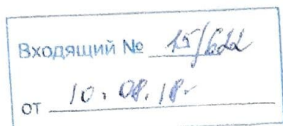 Входящий № 15/622
от 10.08.18.